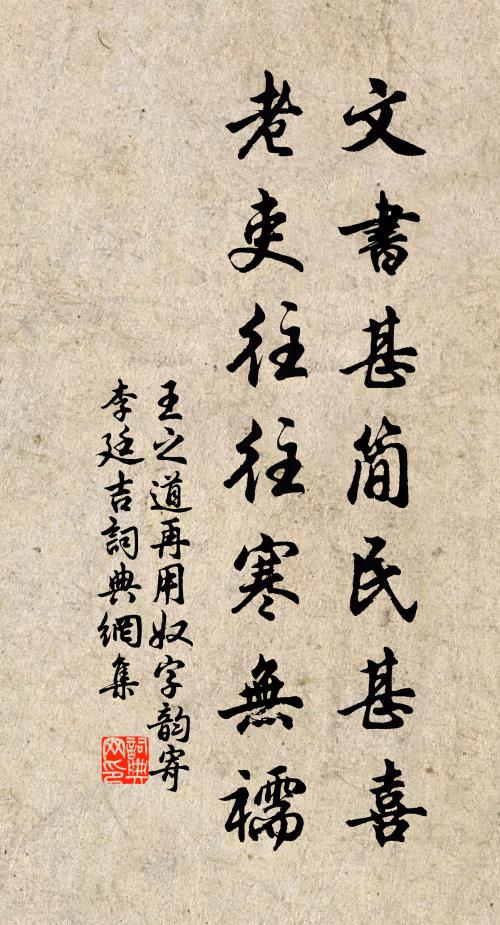 文書甚简民甚喜
老吏往往寒無襦
王之道再用奴字韵寄
李廷吉詞典網集
詞典
网印